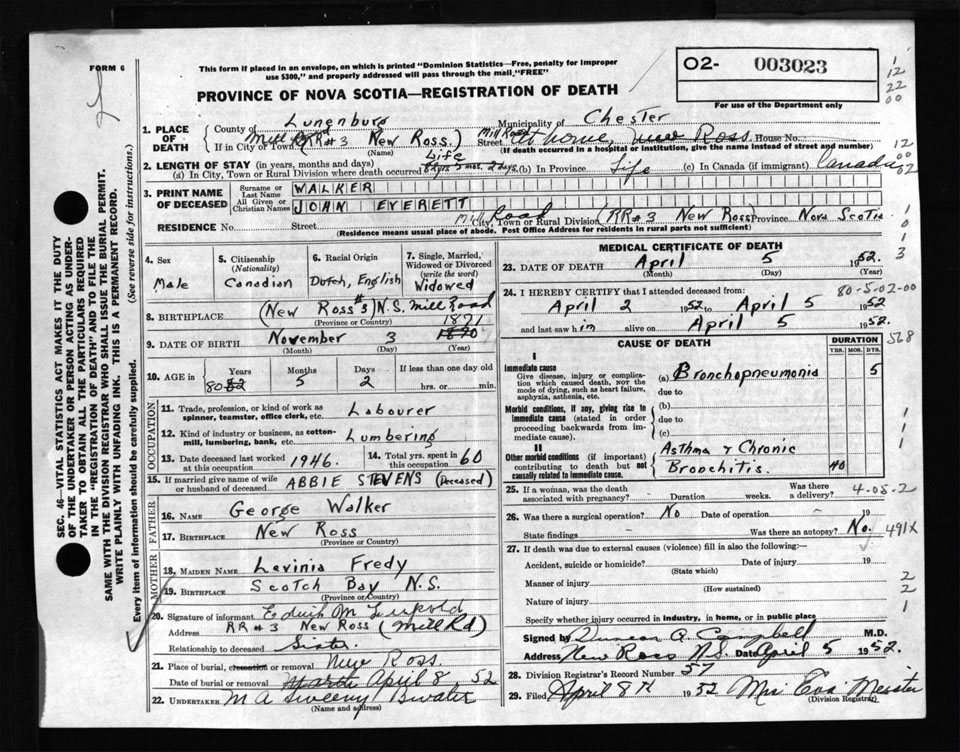 FORM 6
This form if placed in an envelope, on which is printed "Dominion Statistics—Free, penalty for improper
use $300," and properly addressed will pass through the mail, "FREE"
PROVINCE OF NOVA SCOTIA—REGISTRATION OF DEATH
02- 003023
For use of the Department only
1. PLACE OF DEATH
County of Lunenburg Municipality of Chester
If in City or Town Mill Rd RR#3 New Ross.) Street Mill Road At home, New Ross. House No.
(Name) (If death occurred in a hospital or institution, give the name instead of street and number)
2. LENGTH OF STAY (in years, months and days)
(a) In City, Town or Rural Division where death occurred Life (b) In Province Life (c) In Canada (if immigrant) Canada
3. PRINT NAME OF DECEASED
Surname or Last Name WALKER
All Given or Christian Names JOHN EVERETT
RESIDENCE No. Street Mill Road City, Town or Rural Division (RR#3 New Ross) Province Nova Scotia
(Residence means usual place of abode. Post Office Address for residents in rural parts not sufficient)
4. Sex Male
5. Citizenship (Nationality) Canadian
6. Racial Origin Dutch, English
7. Single, Married, Widowed or Divorced (write the word) Widowed
8. BIRTHPLACE (New Ross #3) N.S. Mill Road
(Province or Country)
9. DATE OF BIRTH November 3 1871 1870
(Month) (Day) (Year)
10. AGE in Years Months Days If less than one day old
80 5 2 hrs. or min.
OCCUPATION
11. Trade, profession, or kind of work as spinner, teamster, office clerk, etc. Labourer
12. Kind of industry or business, as cotton-mill, lumbering, bank, etc. Lumbering
13. Date deceased last worked at this occupation 1946. 14. Total yrs. spent in this occupation 60
15. If married give name of wife or husband of deceased ABBIE STEVENS (Deceased)
FATHER
16. NAME George Walker
17. BIRTHPLACE New Ross
(Province or Country)
MOTHER
18. MAIDEN NAME Levinia Fredy
19. BIRTHPLACE Scotch Bay N.S.
(Province or Country)
20. Signature of informant Edwith M Leopold
Address RR#3 New Ross (Mill Rd)
Relationship to deceased Sister.
21. Place of burial, cremation or removal New Ross.
Date of burial or removal March April 8, 52
22. UNDERTAKER M A Sweeny B.water
(Name and address)
MEDICAL CERTIFICATE OF DEATH
23. DATE OF DEATH April 5 1952.
(Month) (Day) (Year)
24. I HEREBY CERTIFY that I attended deceased from: 80-5-02-00
April 2 1952 to April 5 1952
and last saw him alive on April 5 1952.
CAUSE OF DEATH
DURATION
YRS. MOS. DYS.
568
I
Immediate cause
Give disease, injury or complication which caused death, NOT the mode of dying, such as heart failure, asphyxia, asthenia, etc.
(a) Bronchopneumonia 5
due to
Morbid conditions, if any, giving rise to immediate cause (stated in order proceeding backwards from immediate cause).
(b)
due to
(c)
II
Other morbid conditions (if important) contributing to death but not causally related to immediate cause.
Asthma & Chronic
Bronchitis. 40
25. If a woman, was the death associated with pregnancy? Duration weeks. Was there a delivery? 4-05-2
26. Was there a surgical operation? No Date of operation 19
State findings Was there an autopsy? No. 491X
27. If death was due to external causes (violence) fill in also the following:—
Accident, suicide or homicide? Date of injury 19
(State which)
Manner of injury
(How sustained)
Nature of injury
Specify whether injury occurred in industry, in home, or in public place
Signed by Duncan A. Campbell M.D.
Address New Ross N.S. Date April 5 1952.
28. Division Registrar's Record Number 57
29. Filed April 8th 1952 Mrs Eva Meister
(Division Registrar)
SEC. 46—VITAL STATISTICS ACT MAKES IT THE DUTY
OF THE UNDERTAKER OR PERSON ACTING AS UNDER-
TAKER TO OBTAIN ALL THE PARTICULARS REQUIRED
IN THE "REGISTRATION OF DEATH" AND TO FILE THE
SAME WITH THE DIVISION REGISTRAR WHO SHALL ISSUE THE BURIAL PERMIT.
WRITE PLAINLY WITH UNFADING INK. THIS IS A PERMANENT RECORD.
Every item of information should be carefully supplied. (See reverse side for instructions.)
1
12
22
00
12
00
02
1
0
1
3
1
1
1
2
2
1